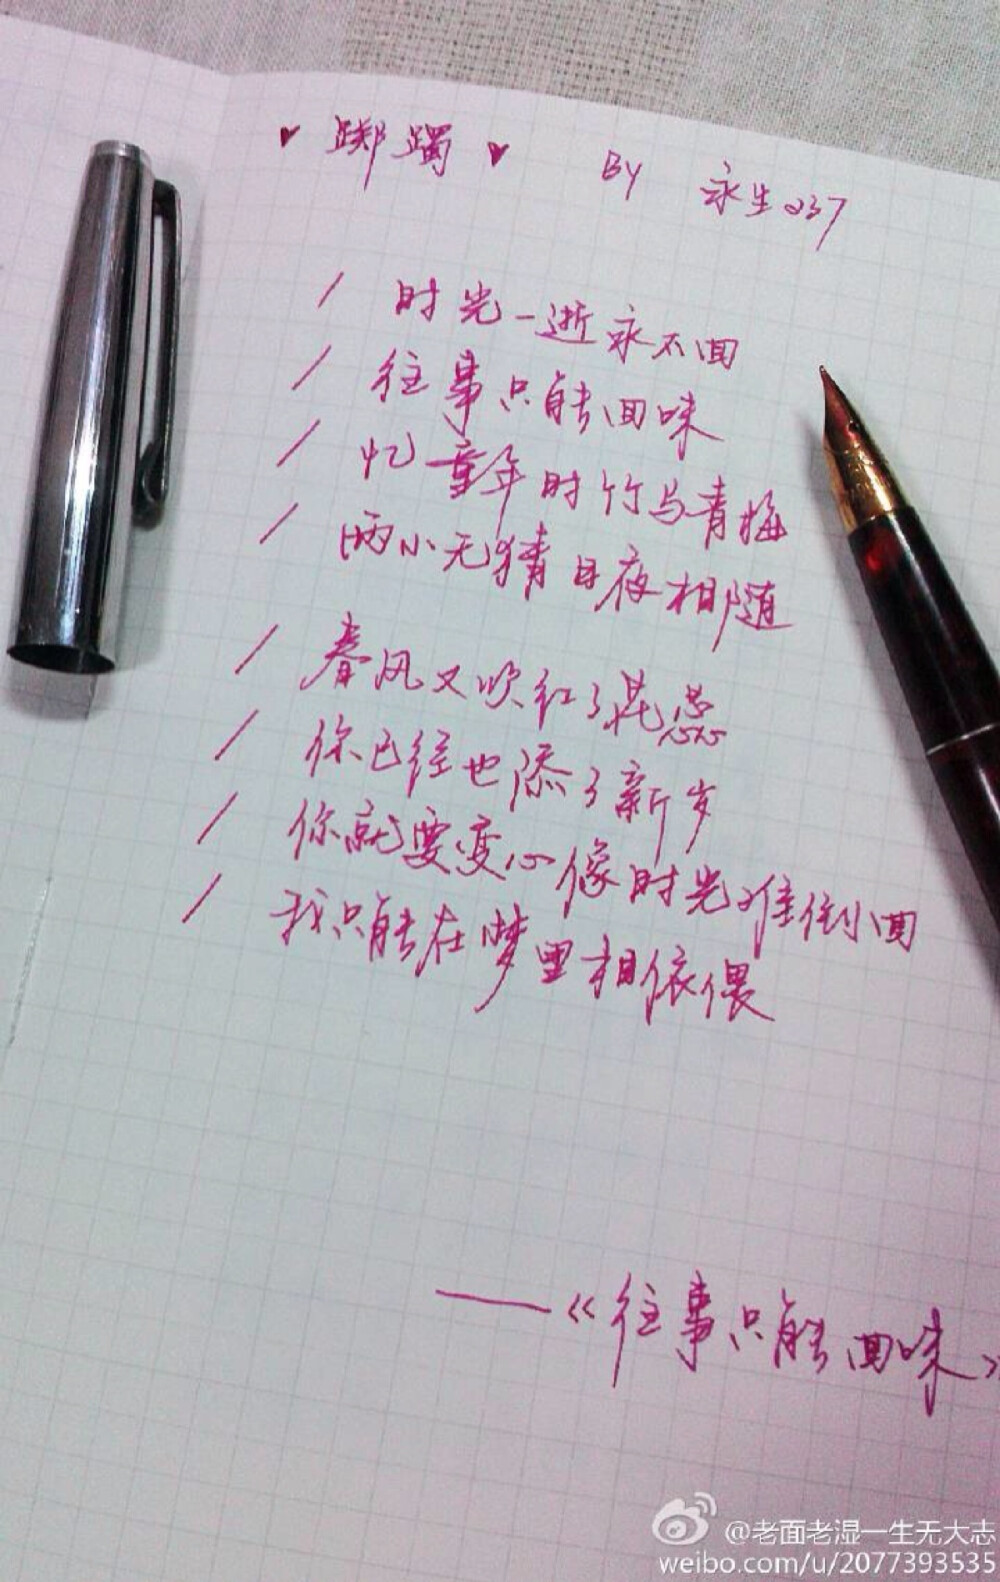 ♥ 踯躅 ♥ BY 永生237
/ 时光一逝永不回
/ 往事只能回味
/ 忆童年时竹马青梅
/ 两小无猜日夜相随
/ 春风又吹红了花蕊
/ 你已经也添了新岁
/ 你就要变心像时光难倒回
/ 我只能在梦里相依偎
——《往事只能回味》
@老面老湿一生无大志
weibo.com/u/2077393535